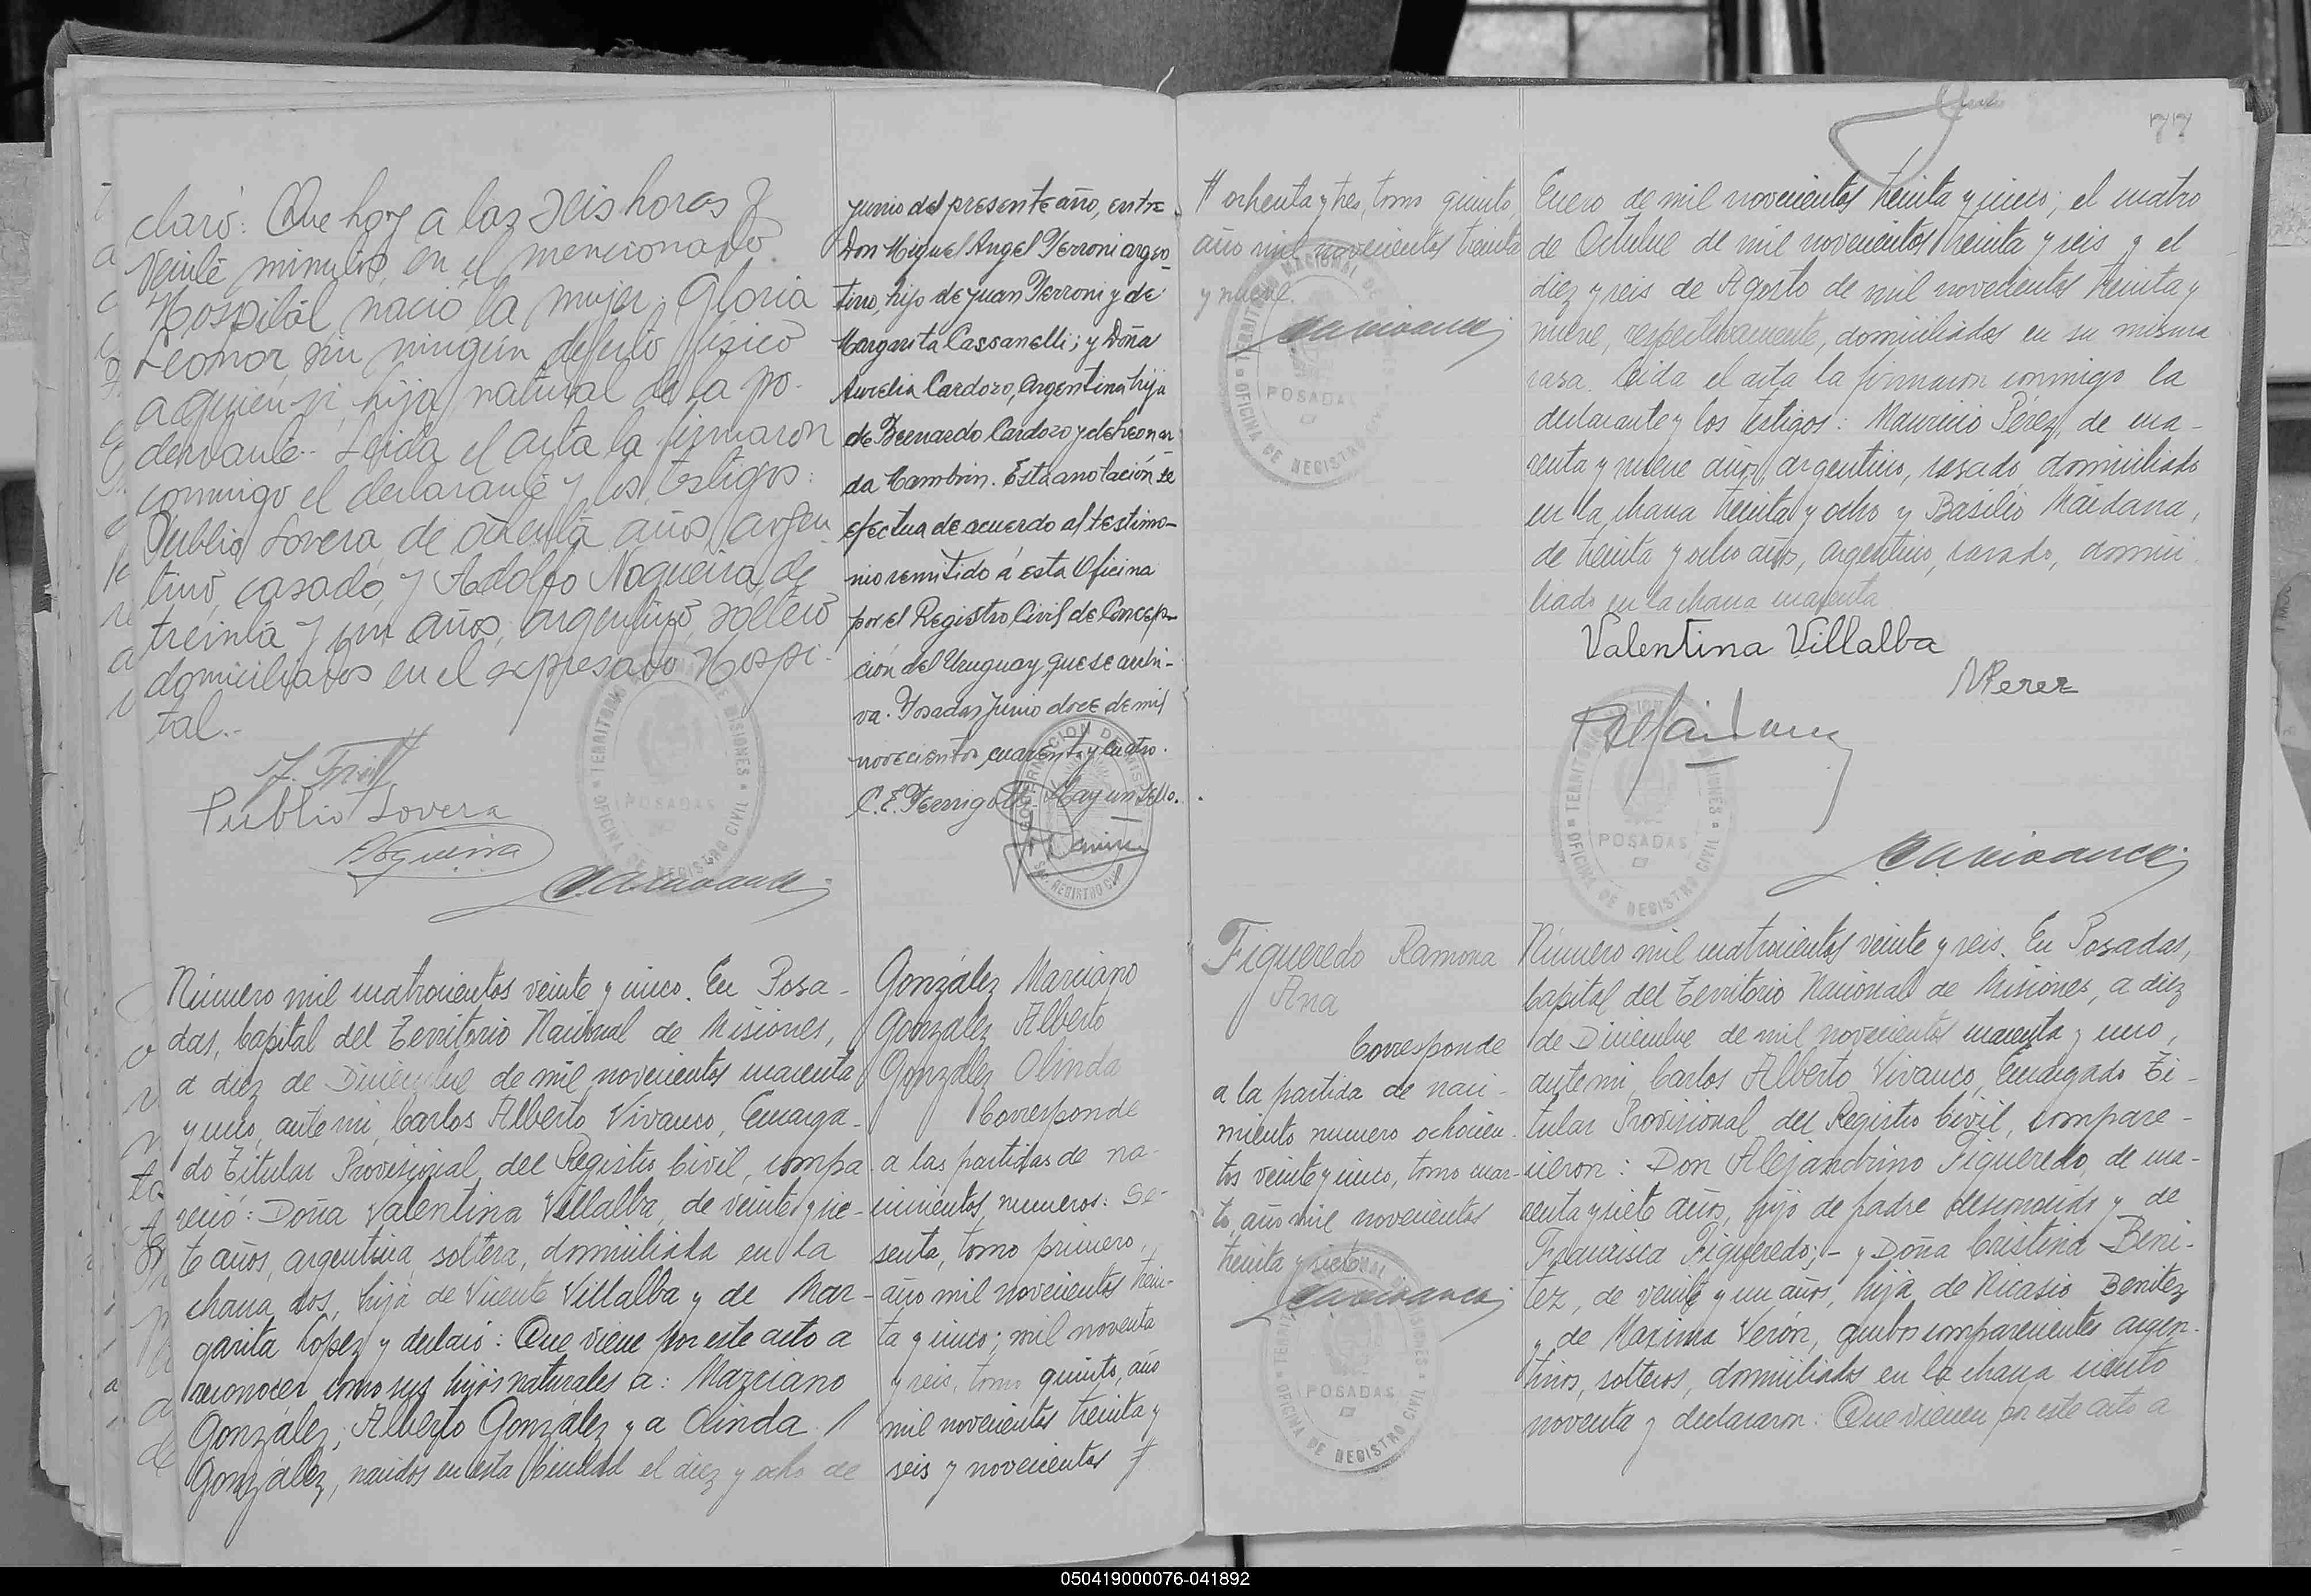 claró: Que hoy a las seis horas y
veinte minutos, en el mencionado
Hospital nació la mujer: Gloria
Leonor, sin ningún defecto físico
a quien vi, hija natural de la po-
derdante.- Leída el acta la firmaron
conmigo el declarante y los testigos:
Publio Lovera de años, argen
tino, casado, y Adolfo Nogueira, de
treinta y un años, argentino, soltero
domiciliados en el expresado Hospi-
tal.-
Publio Lovera
Nogueira
Número mil cuatrocientos veinte y cinco. En Posa-
das, Capital del Territorio Nacional de Misiones,
a diez de Diciembre de mil novecientos cuarenta
y uno, ante mi, Carlos Alberto Vivanco, Encarga-
do Titular Provisional del Registro Civil, compa-
reció: Doña Valentina Villalba, de veinte y sie-
te años, argentina, soltera, domiciliada en la
chacra dos, hija de Vicente Villalba y de Mar-
garita López y declaró: Que viene por este acto a
reconocer como sus hijos naturales a: Marciano
González; Alberto González y a Olinda /
González, nacidos en esta Ciudad el diez y ocho de
junio del presente año, entre
Don Miguel Angel Perroni argen-
tino, hijo de Juan Perroni y de
Margarita Cassanelli; y Doña
Aurelia Cardozo, Argentina hija
de Bernardo Cardozo y de Leonar-
da Mambrin. Esta anotación se
efectua de acuerdo al testimo-
nio remitido á esta Oficina
por el Registro Civil de Concep-
ción del Uruguay, que se archi-
va. Posadas Junio doce de mil
novecientos cuarenta y cuatro.
Hay un sello.
GOBERNACION DE MISIONES
REGISTRO CIVIL
González Marciano
González Alberto
González Olinda
Corresponde
a las partidas de na-
cimientos, numeros: Se-
senta, tomo primero,
año mil novecientos trein-
ta y cinco; mil noventa
y seis, tomo quinto, año
mil novecientos treinta y
seis y novecientos #
TERRITORIO NACIONAL DE MISIONES
POSADAS
OFICINA DE REGISTRO CIVIL
77
# ochenta y tres, tomo quinto,
año mil novecientos treinta
y nueve.
TERRITORIO NACIONAL DE MISIONES
POSADAS
OFICINA DE REGISTRO CIVIL
Figueredo Ramona
Ana
Corresponde
a la partida de naci-
miento numero ochocien-
tos veinte y cinco, tomo cuar-
to, año mil novecientos
treinta y siete
TERRITORIO NACIONAL DE MISIONES
POSADAS
OFICINA DE REGISTRO CIVIL
Enero de mil novecientos treinta y cinco; el cuatro
de Octubre de mil novecientos treinta y seis y el
diez y seis de Agosto de mil novecientos treinta y
nueve, respectivamente, domiciliados en su misma
casa. Leida el acta la firmaron conmigo la
declarante y los testigos: Mauricio Pérez, de cua-
renta y nueve años, argentino, casado, domiciliado
en la chacra treinta y ocho y Basilio Maidana,
de treinta y ocho años, argentino, casado, domici
liado en la chacra cuarenta
Valentina Villalba
MPerez
BMaidana
TERRITORIO NACIONAL DE MISIONES
POSADAS
OFICINA DE REGISTRO CIVIL
Número mil cuatrocientos veinte y seis. En Posadas,
Capital del Territorio Nacional de Misiones, a diez
de Diciembre de mil novecientos cuarenta y uno,
ante mi, Carlos Alberto Vivanco, Encargado Ti-
tular Provisional del Registro Civil, compare-
cieron: Don Alejandrino Figueredo, de cua-
renta y siete años, hijo de padre desconocido y de
Francisca Figueredo;- y Doña Cristina Beni-
tez, de veinte y un años, hija de Nicasio Benitez
y de Maxima Verón, ambos comparecientes argen-
tinos, solteros, domiciliados en la chacra ciento
noventa y declararon: Que vienen por este acto a
050419000076-041892